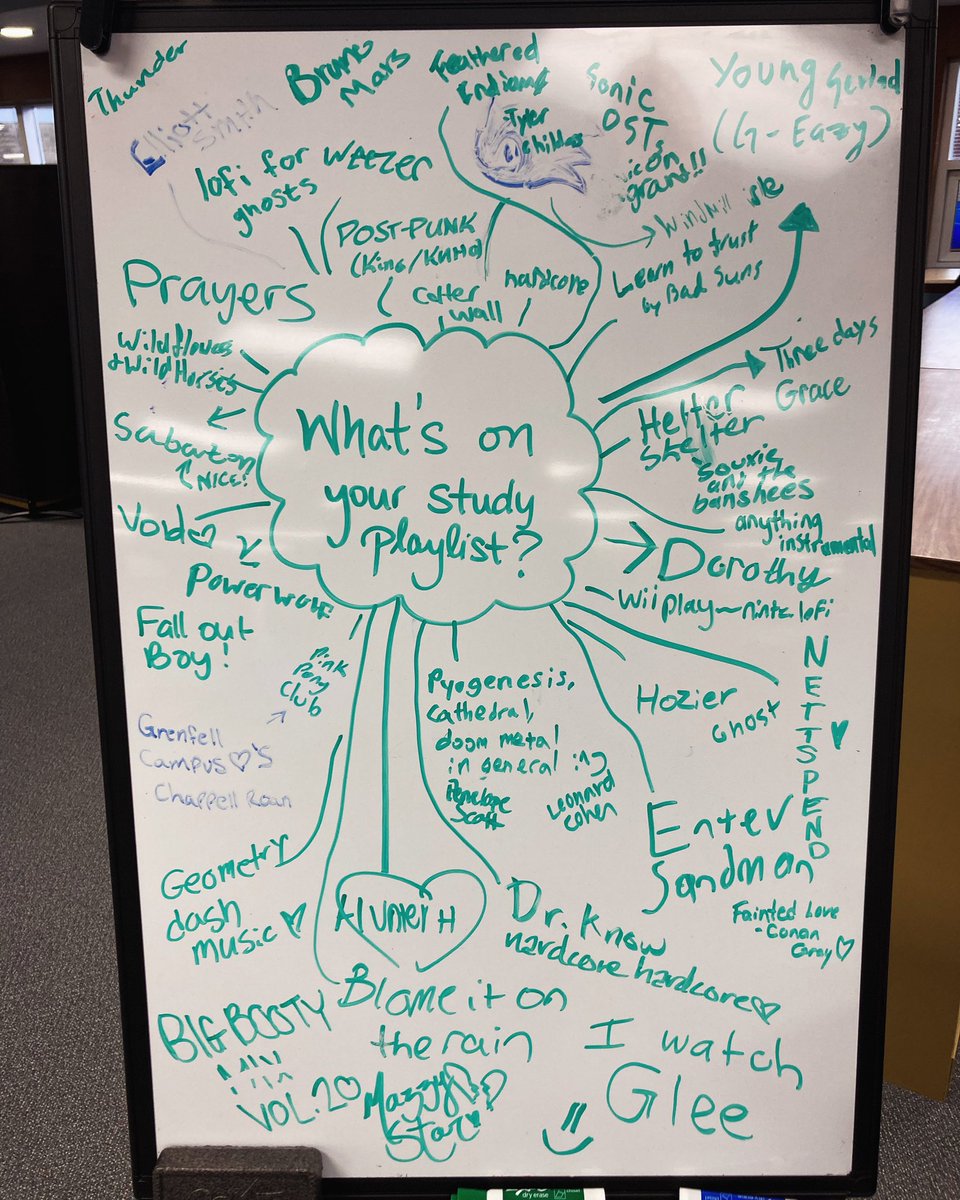 Thunder
Elliott
Smith
Bruno
Mars
Feathered
Indians
-Tyler
Childers
Sonic
OST
icon
grand!!
Young Gerlad
(G-Eazy)
lofi for
ghosts
WEEZER
POST-PUNK
hardcore
Windmill isle
Learn to trust
by Bad Suns
Prayers
Cotter
wall
Wildflowers
& Wild Horses
Three days
Grace
Sabaton
NICE!
What's on
your study
playlist?
Helter
Skelter
Souxie
and the
banshees
anything
instrumental
Void
Dorothy
Powerwolf
Wii play
Fall out
Boy!
Pink
Pony
Club
Grenfell
Campus ♡'s
Chappell Roan
Pyogenesis,
Cathedral,
doom metal
in general
Penelope
Scott
Leonard
Cohen
Hozier
Ghost
NETTSPEND
Enter
Sandman
Fainted Love
- Conan
Gray ♡
Geometry
dash
music ♡
Dr. Know
hardcore hardcore ♡
BIG BOOTY
VOL. 20
Blame it on
the rain
Mazzy
Star
I watch
Glee
dry erase